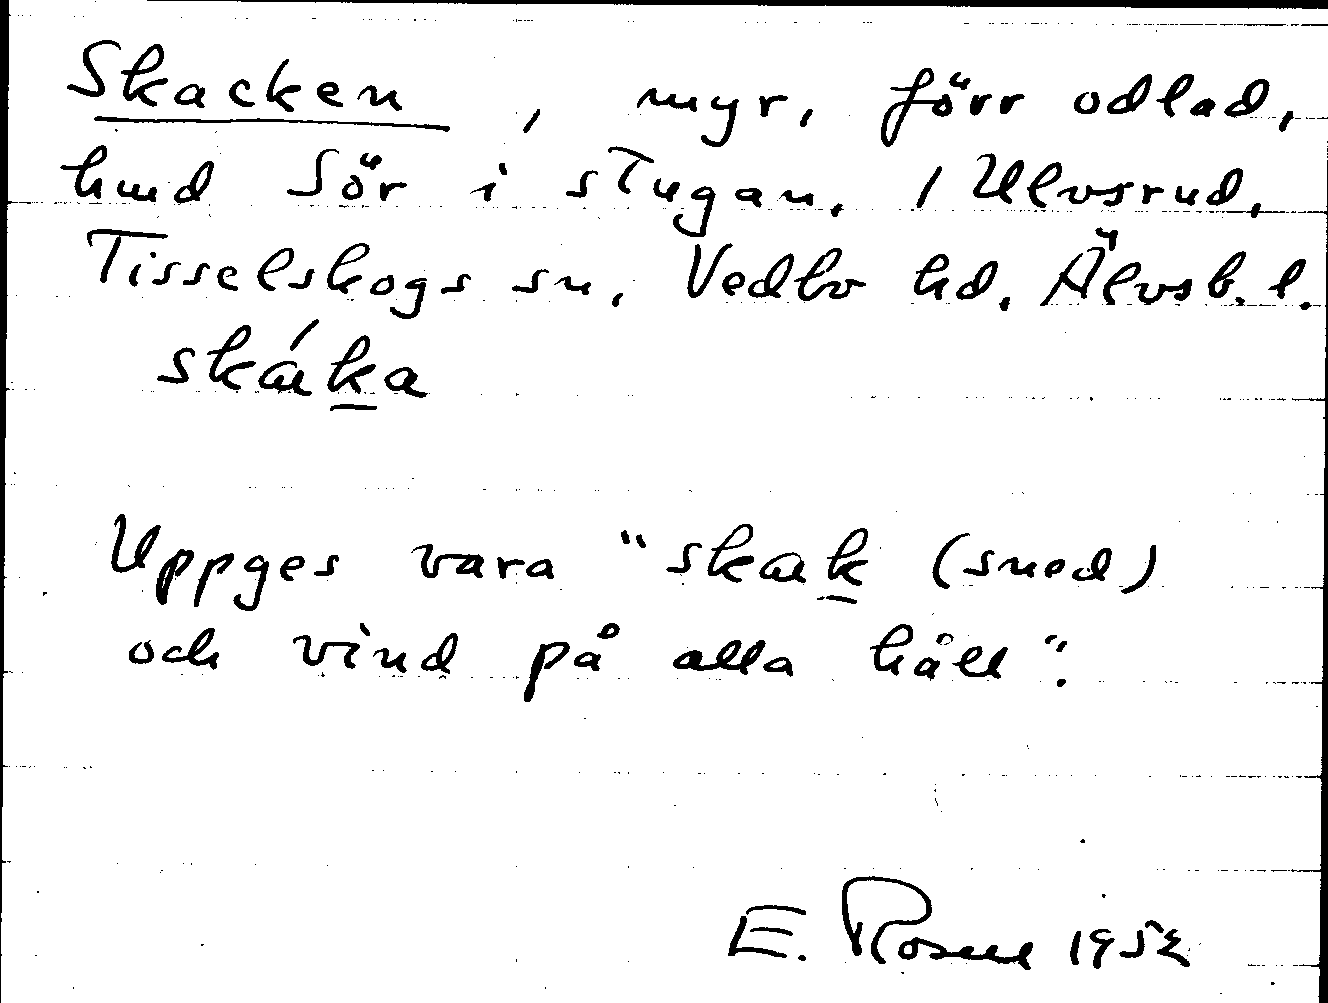 Skacken, myr, förr odlad,
hmd Sör i stugan, 1 Ulvsrud,
Tisselskogs sn, Vedbo hd. Älvsb. l.
skák̲a
Uppges vara "skak̲ (sned)
och vind på alla håll".
E. Rosell 1952